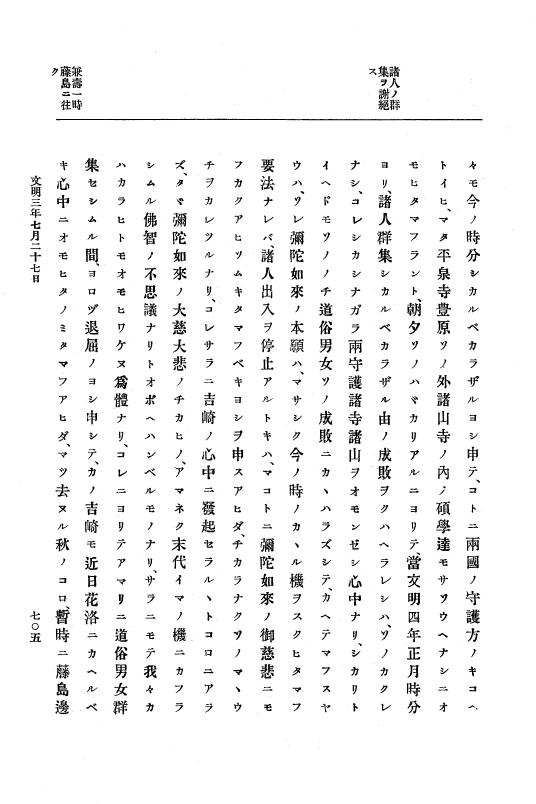 諸人ノ群
集ヲ謝絕
ス
兼壽一時
藤島ニ往
ク
々モ今ノ時分シカルベカラザルヨシ申テ、コトニ兩國ノ守護方ノキコヘ
トイヒ、マタ平泉寺豊原ソノ外諸山寺ノ內ノ碩學達モサソウヘナシニオ
モヒタマフラント、朝夕ソノハヾカリアルニヨリテ、當文明四年正月時分
ヨリ、諸人群集シカルベカラザル由ノ成敗ヲクハヘラレシハ、ソノカクレ
ナシ、コレシカシナガラ兩守護諸寺諸山ヲオモンゼシ心中ナリ、シカリト
イヘドモソノノチ道俗男女ソノ成敗ニカヽハラズシテ、カヘテマフスヤ
ウハ、ソレ彌陀如來ノ本願ハ、マサシク今ノ時ノカヽル機ヲスクヒタマフ
要法ナレバ、諸人出入ヲ停止アルトキハ、マコトニ彌陀如來ノ御慈悲ニモ
フカクアヒソムキタマフベキヨシヲ申スアヒダ、チカラナクソノマヽウ
チヲカレツルナリ、コレサラニ吉崎ノ心中ニ發起セラルヽトコロニアラ
ズ、タヾ彌陀如來ノ大慈大悲ノチカヒノ、アマネク末代イマノ機ニカフラ
シムル佛智ノ不思議ナリトオボヘハンベルモノナリ、サラニモテ我々カ
ハカラヒトモオモヒワケヌ爲體ナリ、コレニヨリテアマリニ道俗男女群
集セシムル間、ヨロヅ退屈ノヨシ申シテ、カノ吉崎モ近日花洛ニカヘルベ
キ心中ニオモヒタノミタマフアヒダ、マツ去ヌル秋ノコロ、暫時ニ藤島邊
文明三年七月二十七日
七〇五